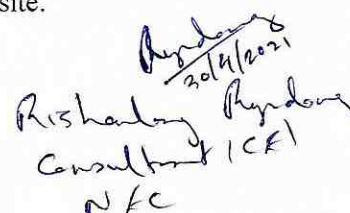 site.
Ryndong
30/4/2021
Rishanlang Ryndong
Consultant (CE)
NEC